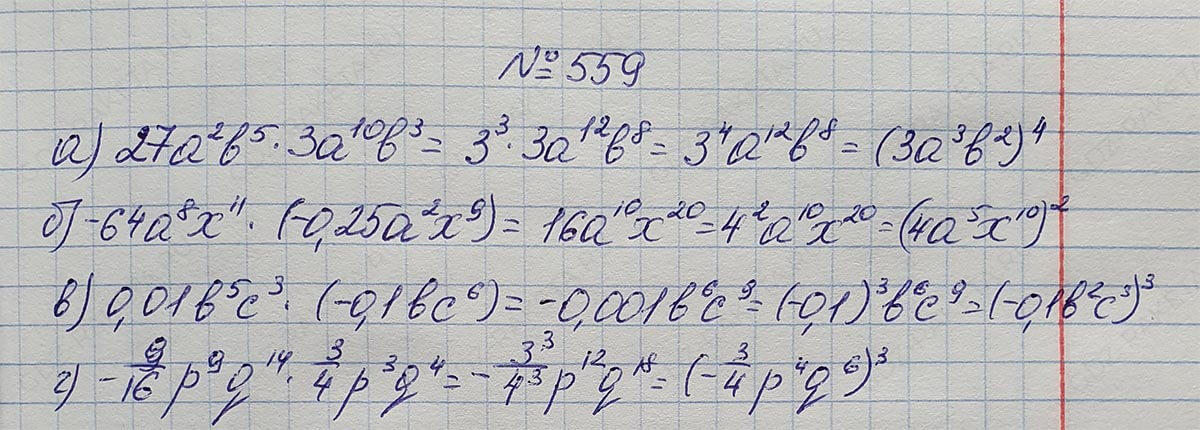 № 559
а) 27a²b⁵ · 3a¹⁰b³ = 3³ · 3a¹²b⁸ = 3⁴a¹²b⁸ = (3a³b²)⁴
б) -64a⁸x¹¹ · (-0,25a²x⁹) = 16a¹⁰x²⁰ = 4²a¹⁰x²⁰ = (4a⁵x¹⁰)²
в) 0,01b⁵c³ · (-0,1bc⁶) = -0,001b⁶c⁹ = (-0,1)³b⁶c⁹ = (-0,1b²c³)³
г) -9/16 p⁹q¹⁴ · 3/4 p³q⁴ = -3³/4³ p¹²q¹⁸ = (-3/4 p⁴q⁶)³